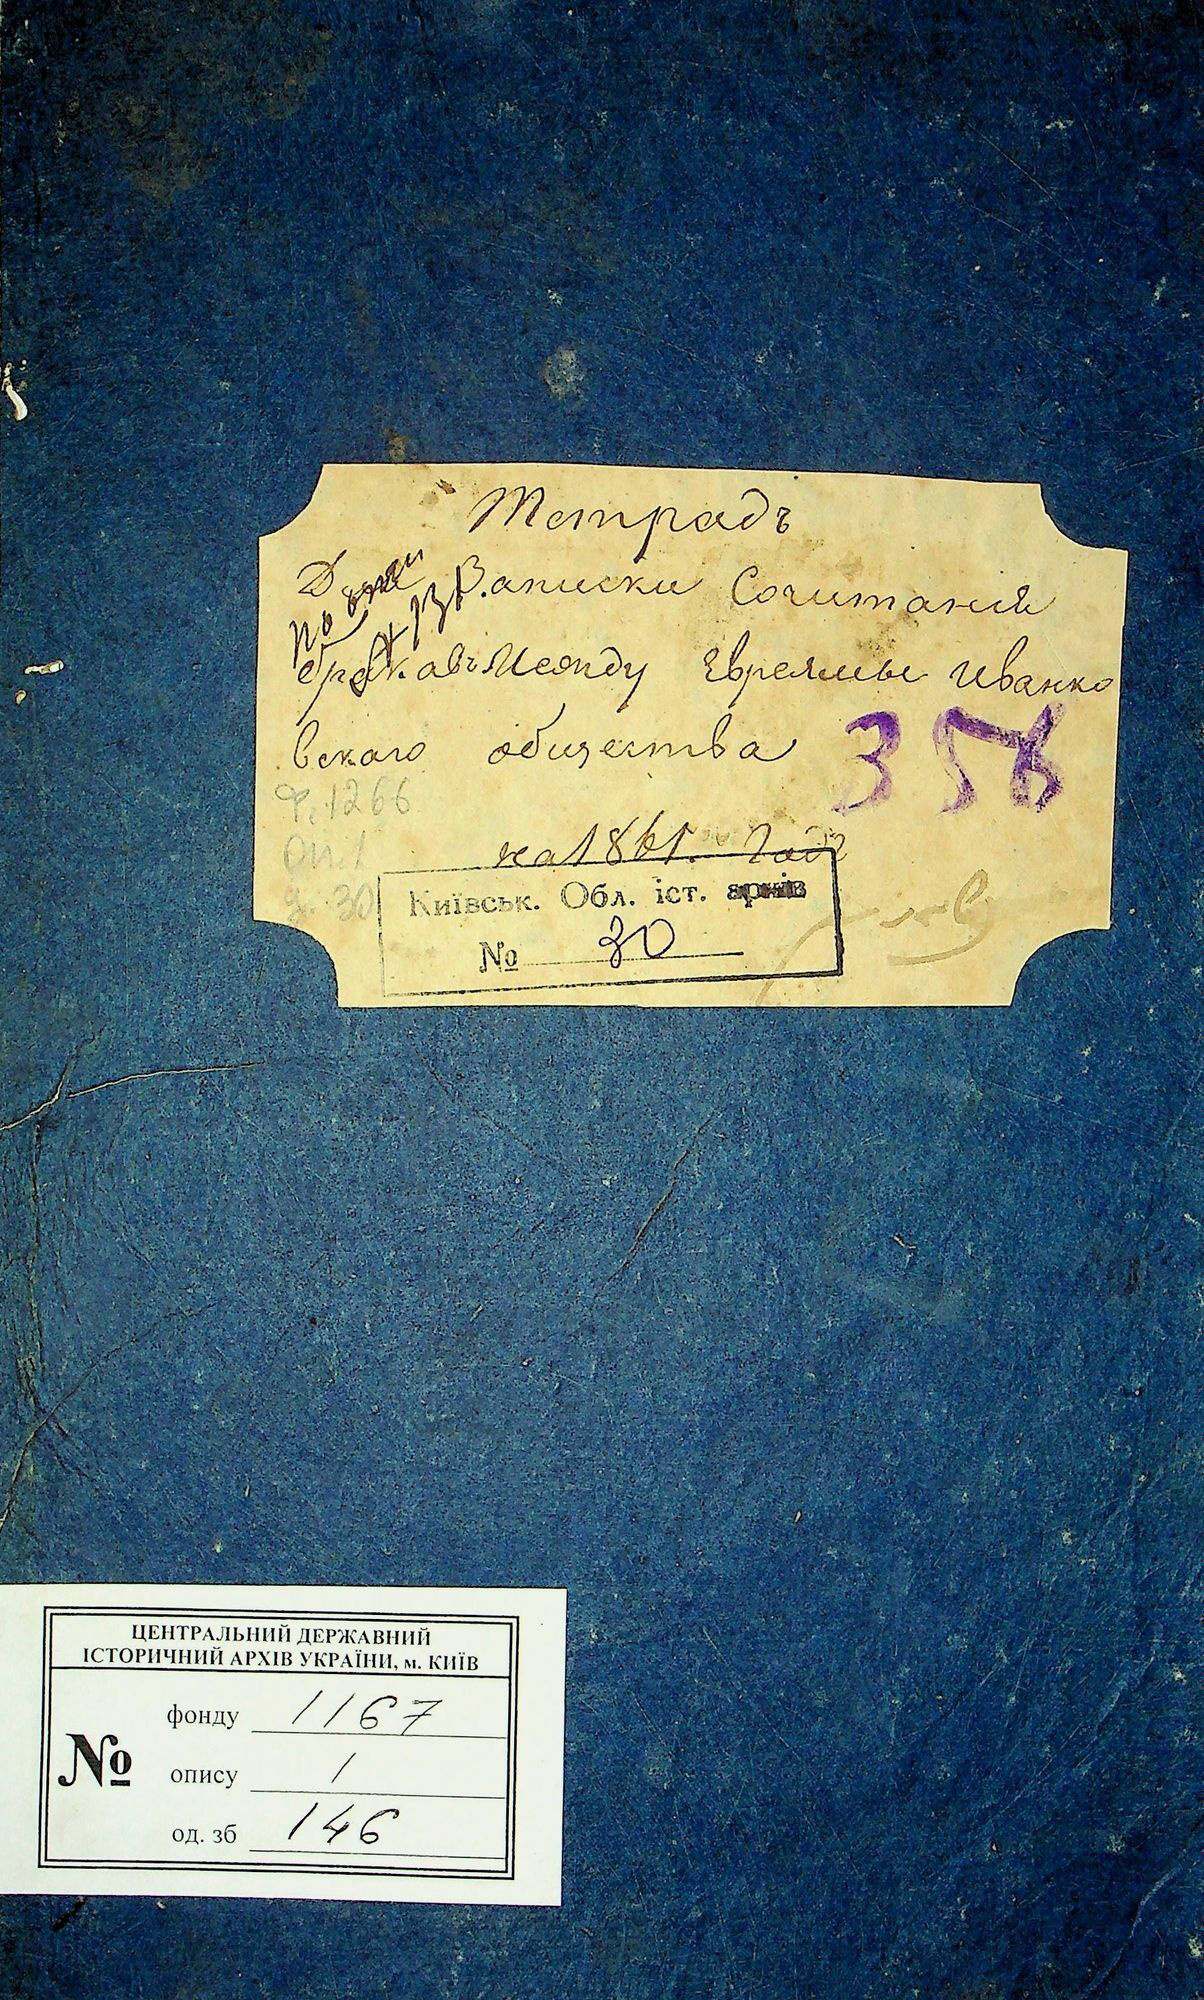 Тетрадь
Для Записки Сочитанія
браковъ Между Евреямы Иванко
вскаго общества
358
ф. 1266
Оп. 1
д. 30
на 1861. Годъ
Київськ. Обл. іст. архів
№ 30
ЦЕНТРАЛЬНИЙ ДЕРЖАВНИЙ
ІСТОРИЧНИЙ АРХІВ УКРАЇНИ, м. КИЇВ
№
фонду 1167
опису 1
од. зб 146